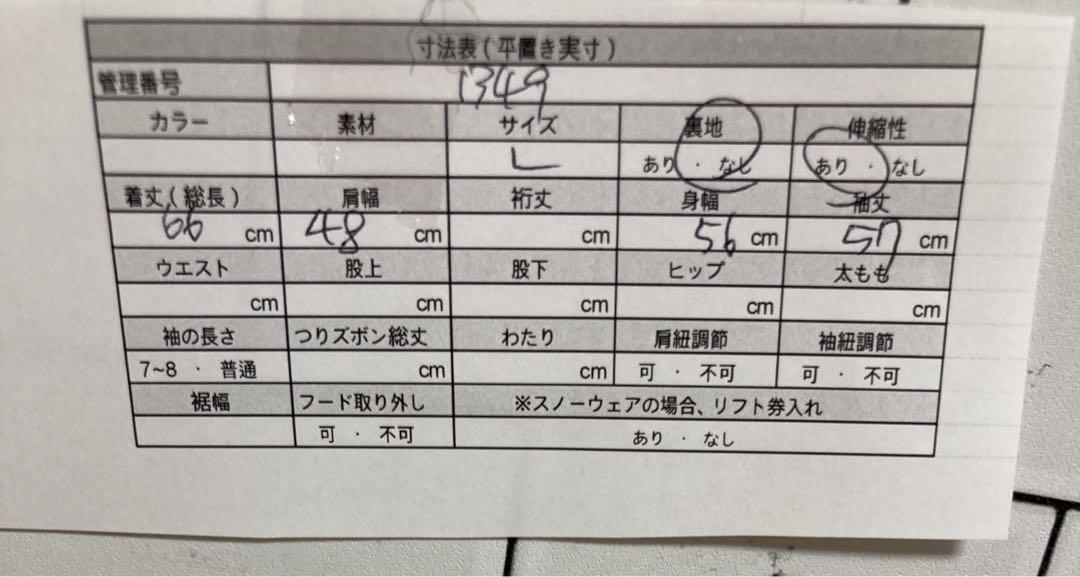 寸法表(平置き実寸)
管理番号 1349
カラー 素材 サイズ 裏地 伸縮性
L あり ・ なし あり ・ なし
着丈(総長) 肩幅 裄丈 身幅 袖丈
66 cm 48 cm cm 56 cm 57 cm
ウエスト 股上 股下 ヒップ 太もも
cm cm cm cm cm
袖の長さ つりズボン総丈 わたり 肩紐調節 袖紐調節
7~8 ・ 普通 cm cm 可 ・ 不可 可 ・ 不可
裾幅 フード取り外し ※スノーウェアの場合、リフト券入れ
可 ・ 不可 あり ・ なし